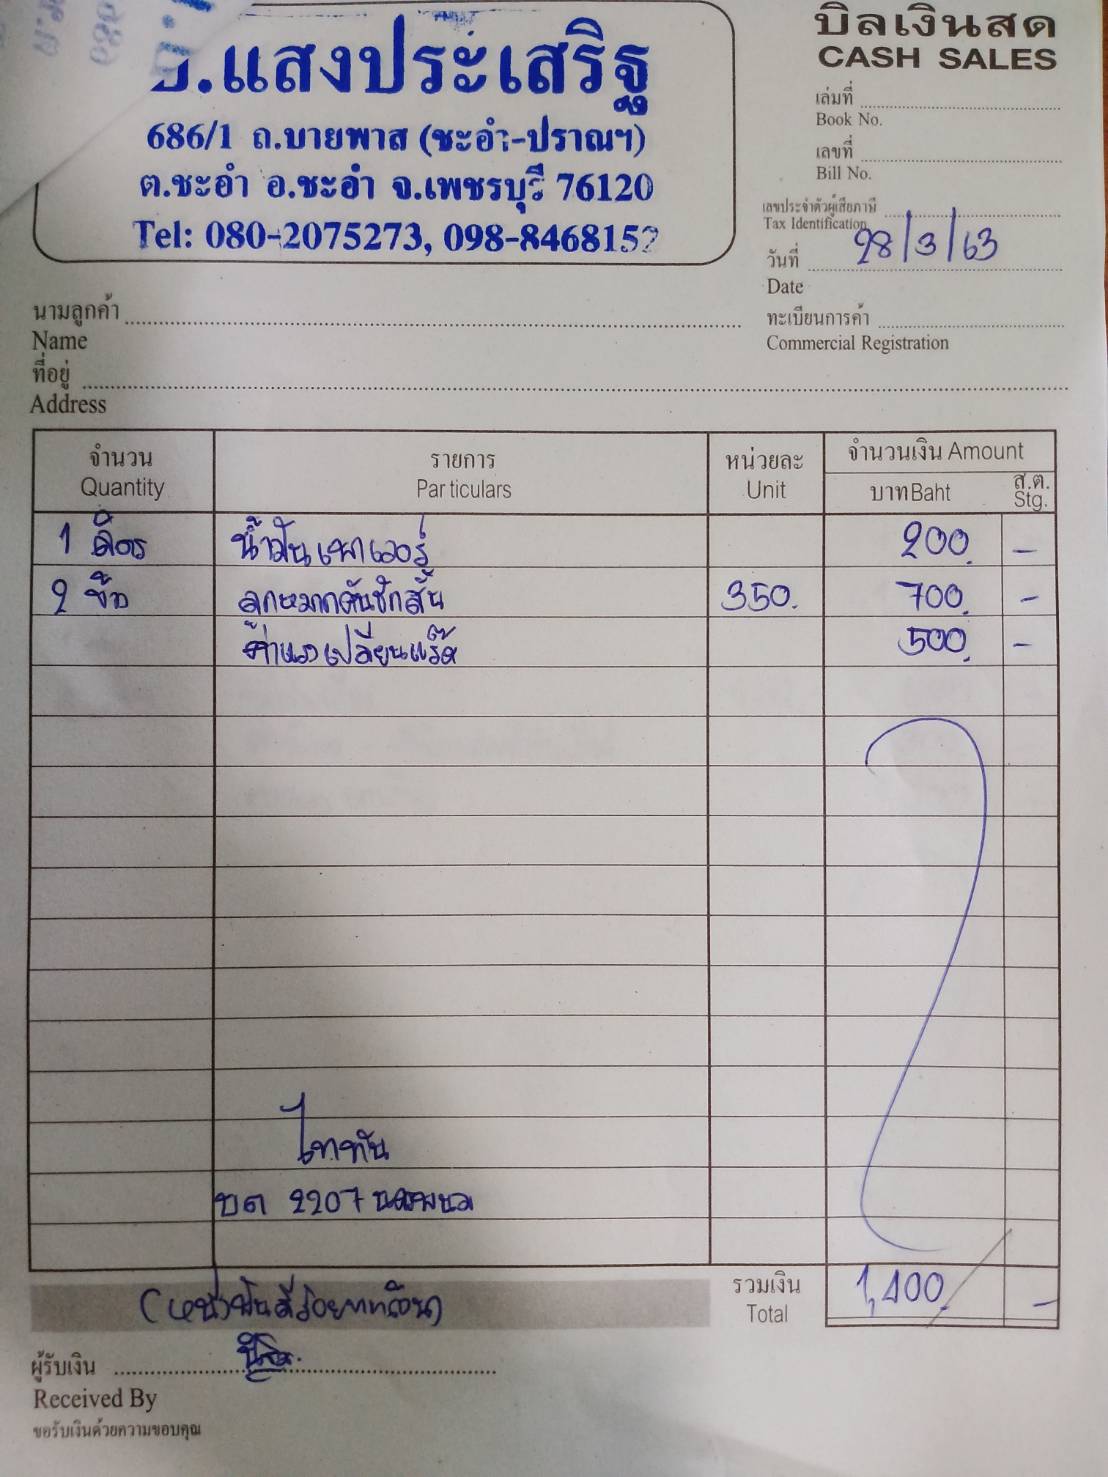 บิลเงินสด
CASH SALES
.แสงประเสริฐ
686/1 ถ.บายพาส (ชะอำ-ปราณฯ)
ต.ชะอำ อ.ชะอำ จ.เพชรบุรี 76120
Tel: 080-2075273, 098-8468152
เล่มที่
Book No.
เลขที่
Bill No.
เลขประจำตัวผู้เสียภาษี
Tax Identification
วันที่ 28/3/63
Date
นามลูกค้า
Name
ทะเบียนการค้า
Commercial Registration
ที่อยู่
Address
จำนวน รายการ หน่วยละ จำนวนเงิน Amount
Quantity Particulars Unit บาท Baht ส.ต. Stg.
1 ลิตร น้ำมันเพาเวอร์ 200. -
2 ชิ้น ลูกหมากคันชักสั้น 350. 700. -
ค่าแรงเปลี่ยนแร็ค 500. -
ไททัน
บต 2207 นครพนม
(หนึ่งพันสี่ร้อยบาทถ้วน) รวมเงิน 1,400. -
Total
ผู้รับเงิน
Received By
ขอรับเงินด้วยความขอบคุณ